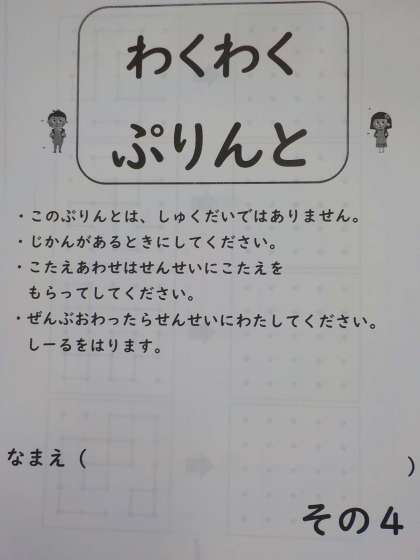 わくわく
ぷりんと
・このぷりんとは、しゅくだいではありません。
・じかんがあるときにしてください。
・こたえあわせはせんせいにこたえを
もらってしてください。
・ぜんぶおわったらせんせいにわたしてください。
しーるをはります。
なまえ（　　　）
その４